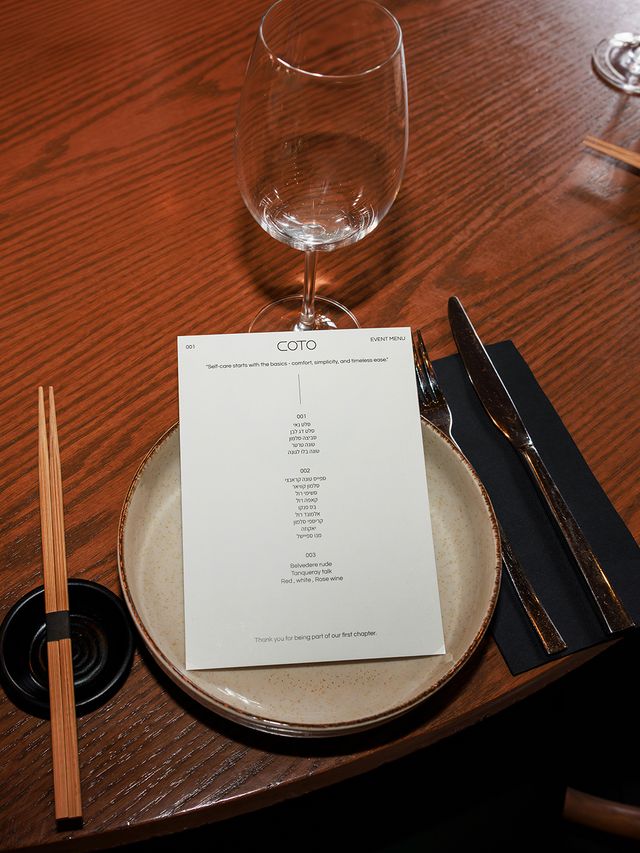 001
COTO
EVENT MENU
"Self-care starts with the basics - comfort, simplicity, and timeless ease."
001
סלט גאי
סלט דג לבן
סביצה סלמון
טונה טרטר
טונה בלו לגונה
002
ספייס טונה קראנצי
סלמון קוויאר
סשימי רול
קאפה רול
בס פנקו
אלמונד רול
קריספי סלמון
יאקוזה
מנו ספיישל
003
Belvedere rude
Tanqueray talk
Red , white , Rose wine
Thank you for being part of our first chapter.